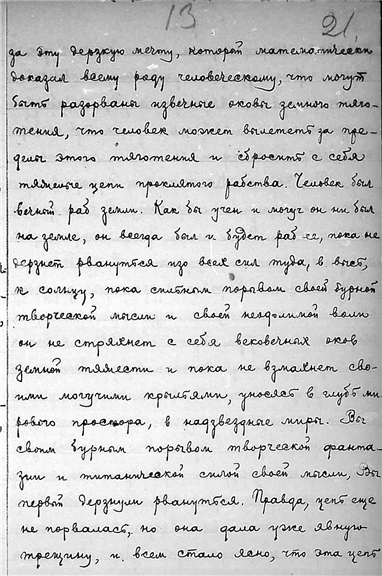 13
21.
за эту дерзкую мечту, который математически
доказал всему роду человеческому, что могут
быть разорваны извечные оковы земного тяго-
тения, что человек может вылететь за пре-
делы этого тяготения и сбросить с себя
тяжелые цепи проклятого рабства. Человек был
вечной раб земли. Как бы учен и могуч он ни был
на земле, он всегда был и будет раб ее, пока не
дерзнет рвануться изо всех сил туда, в высь,
к солнцу, пока слитным порывом своей бурной
творческой мысли и своей неодолимой воли
он не стряхнет с себя вековечных оков
земной тяжести и пока не взмахнет сво-
ими могучими крыльями, уносясь в глубь ми-
рового простора, в надзвездные миры. Вы
своим бурным порывом творческой фанта-
зии и титанической силой своей мысли, Вы
первый дерзнули рвануться. Правда, цепь еще
не порвалась, но она дала уже явную
трещину, и всем стало ясно, что эта цепь